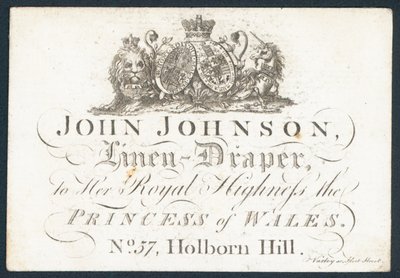 JOHN JOHNSON,
Linen-Draper,
to Her Royal Highneſs the
PRINCESS of WALES.
No. 57, Holborn Hill.